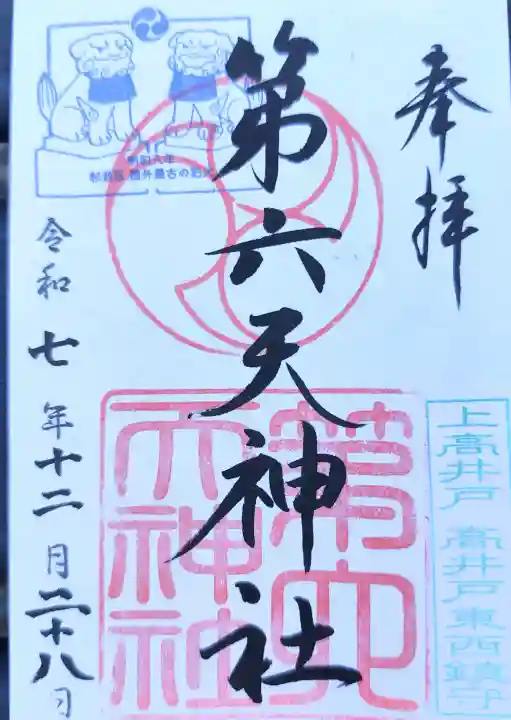 奉拝
上高井戸 高井戸東西鎮守
第六天神社
第六
天神社
令和七年十二月二十八日